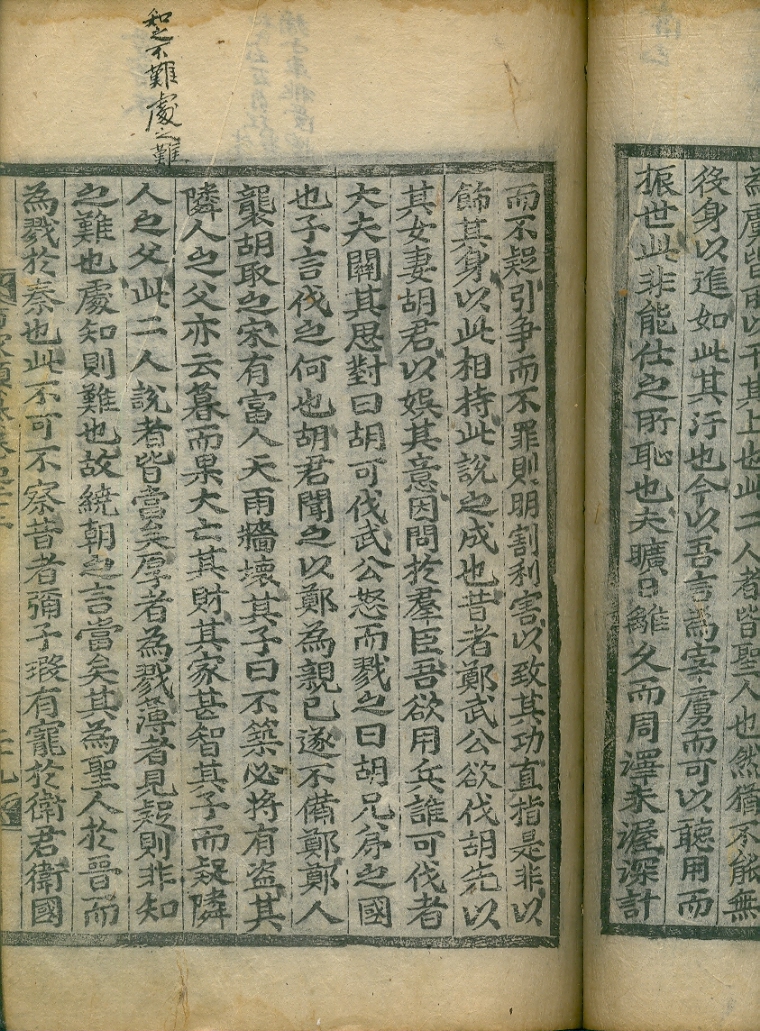 為虜皆所以干其上也此二人者皆聖人也然猶不能無
役身以進如此其汙也今以吾言為宰虜而可以聽用而
振世此非能仕之所恥也夫曠日離久而周澤未渥深計
而不疑引爭而不罪則明割利害以致其功直指是非以
飾其身以此相持此說之成也昔者鄭武公欲伐胡先以
其女妻胡君以娛其意因問於羣臣吾欲用兵誰可伐者
大夫關其思對曰胡可伐武公怒而戮之曰胡兄弟之國
也子言伐之何也胡君聞之以鄭為親已遂不備鄭鄭人
襲胡取之宋有富人天雨牆壞其子曰不築必將有盗其
隣人之父亦云暮而果大亡其財其家甚智其子而疑隣
人之父此二人說者皆當矣厚者為戮薄者見疑則非知
之難也處知則難也故繞朝之言當矣其為聖人於晋而
為戮於秦也此不可不察昔者彌子瑕有寵於衛君衛國
知之不難處之難